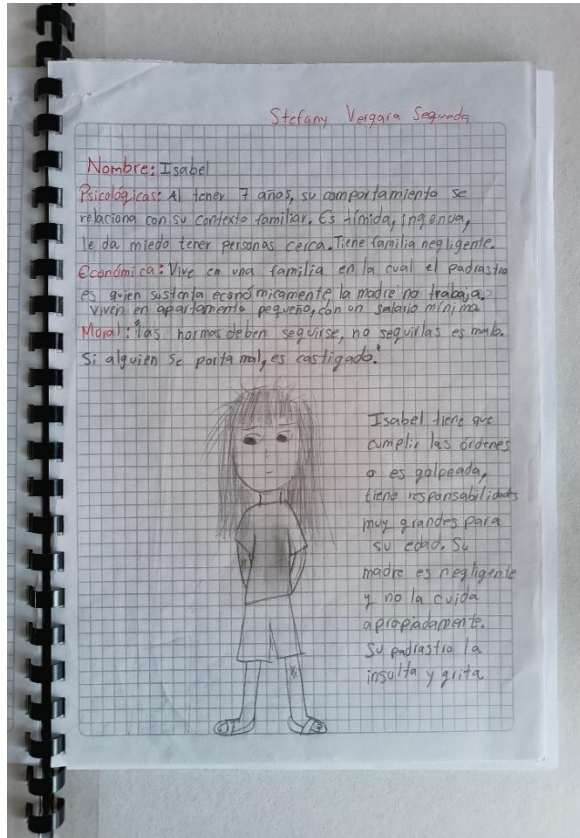 Stefany Vergara Segueda
Nombre: Isabel
Psicológicas: Al tener 7 años, su comportamiento se
relaciona con su contexto familiar. Es tímida, ingenua,
le da miedo tener personas cerca. Tiene familia negligente.
Económica: Vive en una familia en la cual el padrastro
es quien sustenta económicamente la madre no trabaja.
viven en apartamento pequeño, con un salario mínimo
Moral: "las normas deben seguirse, no seguirlas es malo.
Si alguien se porta mal, es castigado."
Isabel tiene que
cumplir las órdenes
o es golpeada,
tiene responsabilidades
muy grandes para
su edad. Su
madre es negligente
y no la cuida
apropiadamente.
Su padrastro la
insulta y grita